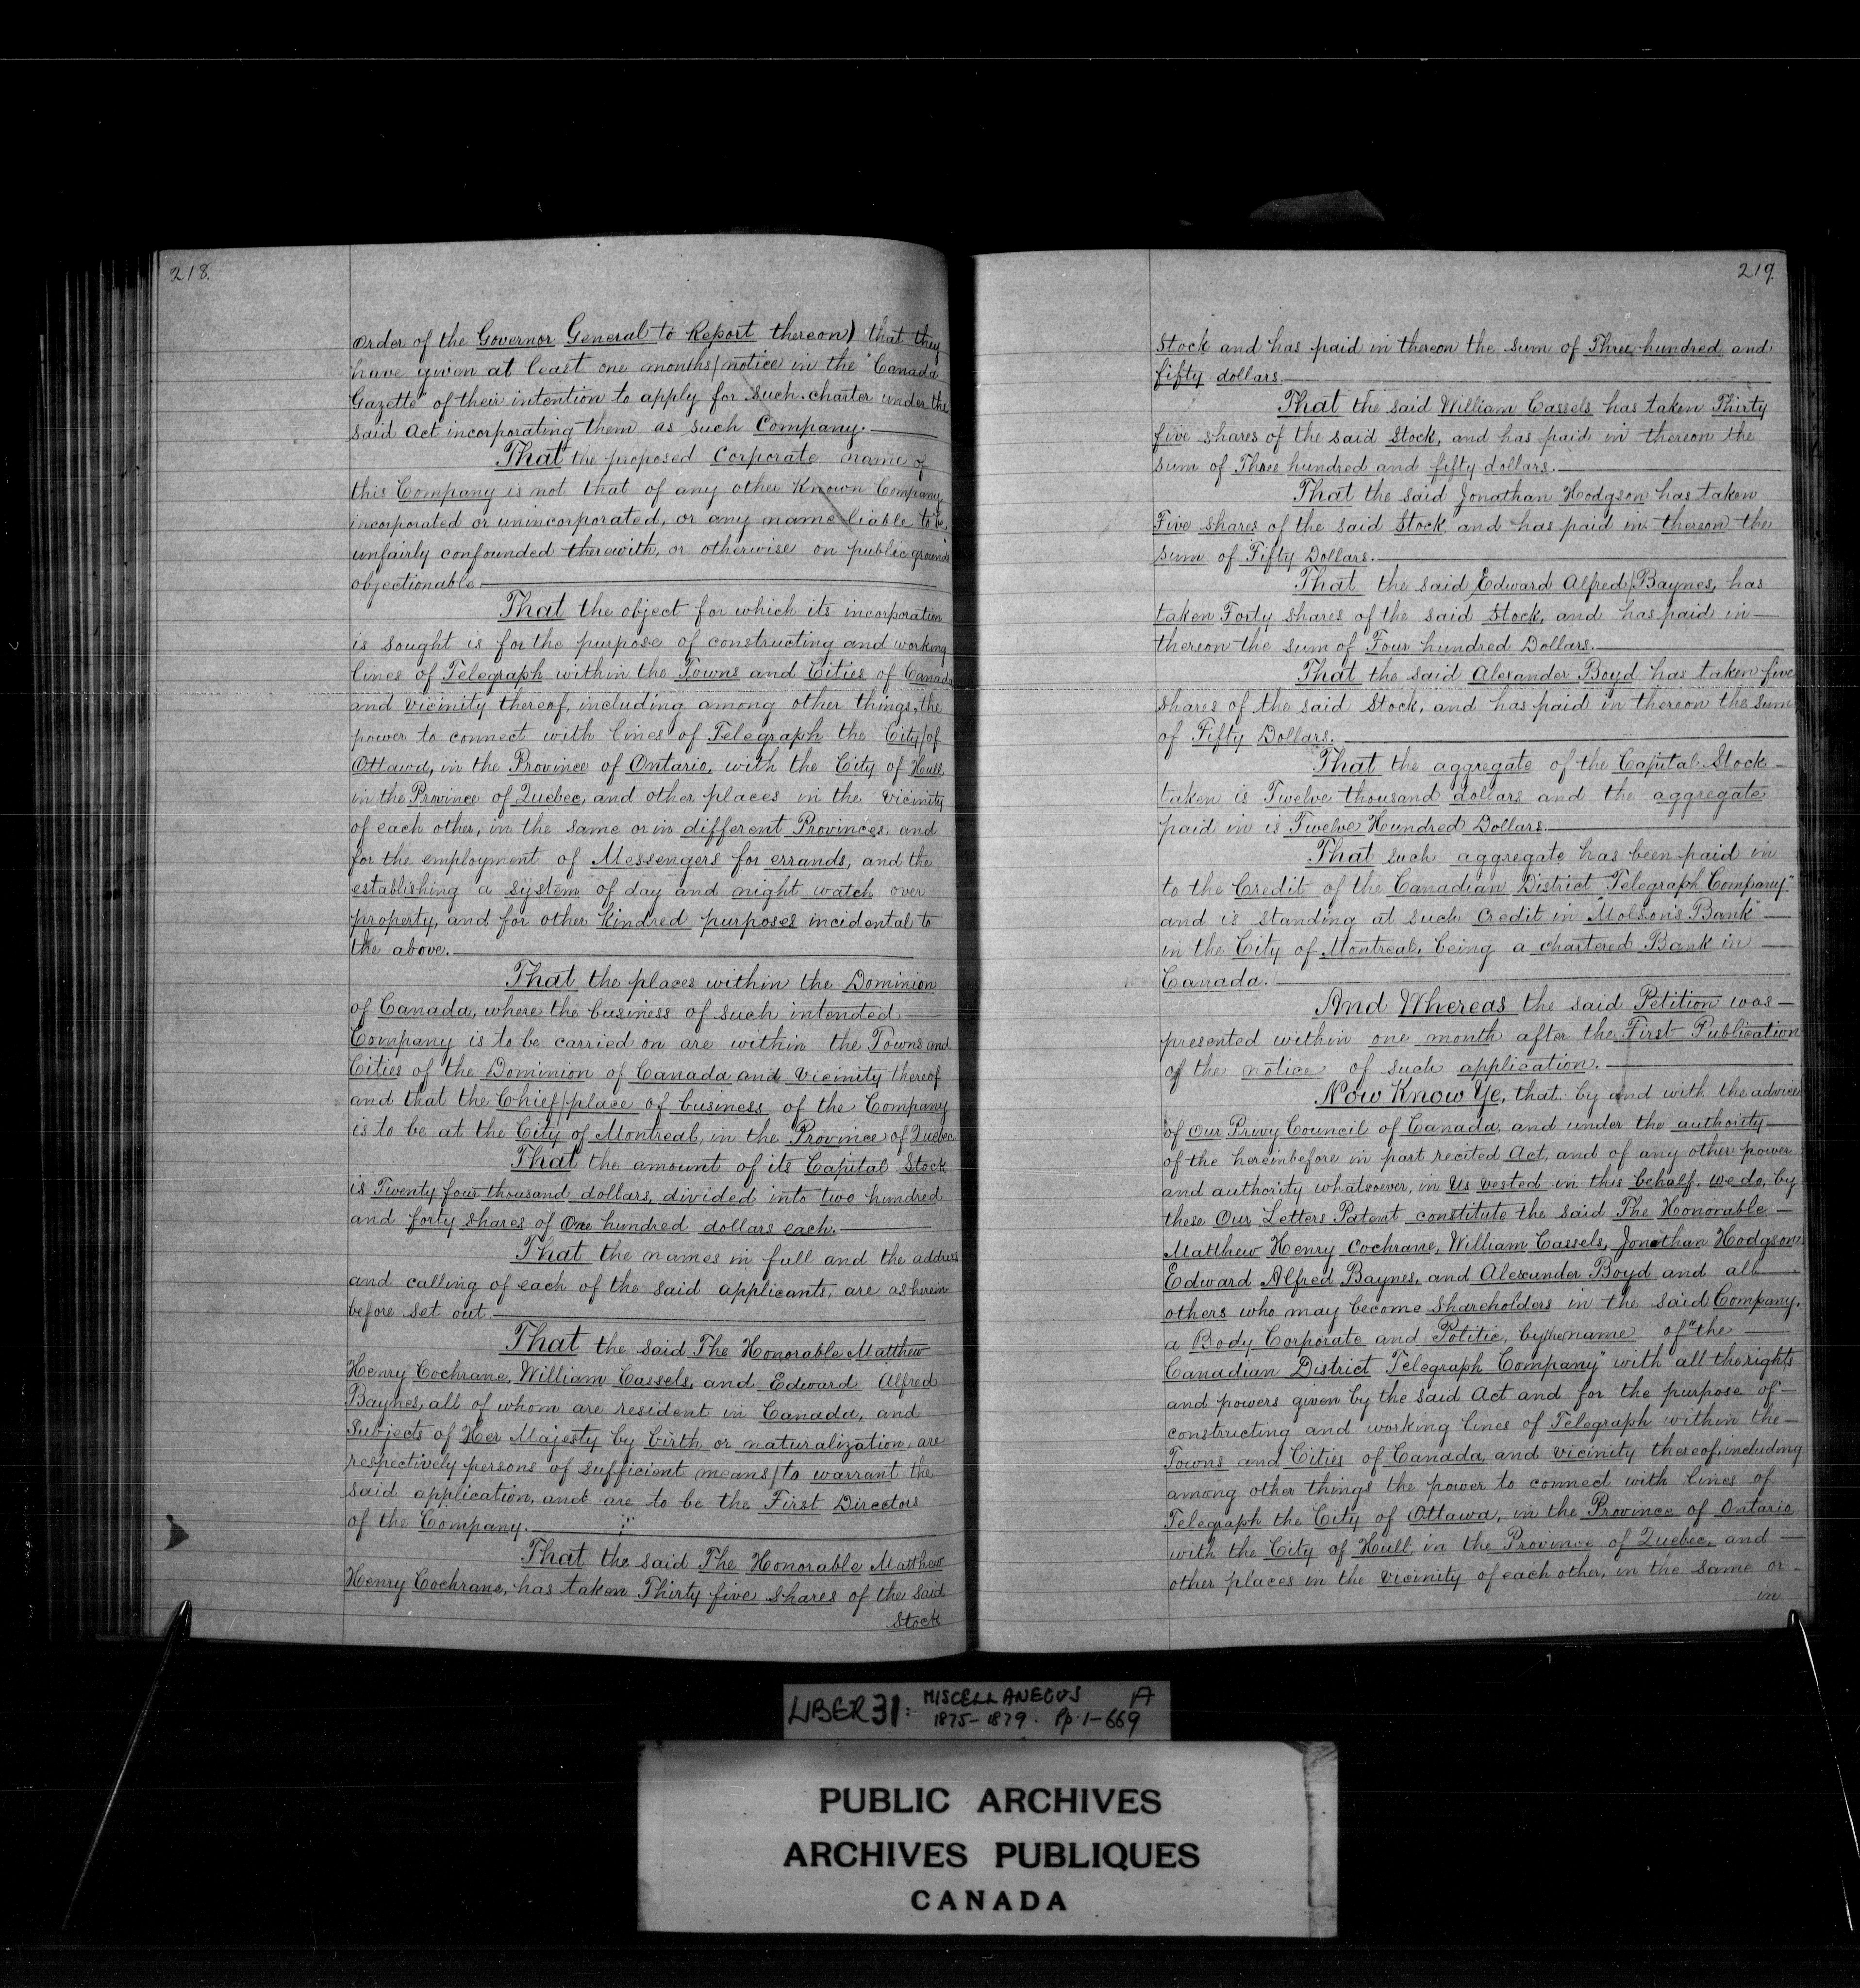 218.
order of the Governor General to Report thereon) that they
have given at least one months notice in the "Canada
Gazette" of their intention to apply for such charter under the
said Act incorporating them as such Company.
That the proposed Corporate name of
this Company is not that of any other Known Company
incorporated or unincorporated, or any name liable to be
unfairly confounded therewith, or otherwise on public grounds
objectionable.
That the object for which its incorporation
is sought is for the purpose of constructing and working
lines of Telegraph within the Towns and Cities of Canada
and vicinity thereof, including among other things, the
power to connect with lines of Telegraph the City of
Ottawa, in the Province of Ontario, with the City of Hull
in the Province of Quebec, and other places in the vicinity
of each other, in the same or in different Provinces, and
for the employment of Messengers for errands, and the
establishing a system of day and night watch over
property, and for other kindred purposes incidental to
the above.
That the places within the Dominion
of Canada, where the business of such intended
Company is to be carried on are within the Towns and
Cities of the Dominion of Canada and vicinity thereof
and that the Chief place of business of the Company
is to be at the City of Montreal, in the Province of Quebec
That the amount of its Capital Stock
is Twenty four thousand dollars, divided into two hundred
and forty shares of One hundred dollars each.
That the names in full and the address
and calling of each of the said applicants, are as herein
before set out
That the said The Honorable Matthew
Henry Cochrane, William Cassels, and Edward Alfred
Baynes, all of whom are resident in Canada, and
Subjects of Her Majesty by birth or naturalization, are
respectively persons of sufficient means to warrant the
said application, and are to be the First Directors
of the Company.
That the said The Honorable Matthew
Henry Cochrane, has taken Thirty five shares of the said
Stock
219.
Stock and has paid in thereon the sum of Three hundred and
fifty dollars.
That the said William Cassels has taken Thirty
five shares of the said Stock, and has paid in thereon the
sum of Three hundred and fifty dollars.
That the said Jonathan Hodgson has taken
Five shares of the said Stock and has paid in thereon the
sum of Fifty Dollars.
That the said Edward Alfred Baynes, has
taken Forty shares of the said Stock, and has paid in
thereon the sum of Four hundred Dollars.
That the said Alexander Boyd has taken five
shares of the said Stock, and has paid in thereon the sum
of Fifty Dollars.
That the aggregate of the Capital Stock
taken is Twelve thousand dollars and the aggregate
paid in is Twelve Hundred Dollars.
That such aggregate has been paid in
to the Credit of the Canadian District Telegraph Company"
and is standing at such credit in "Molson's Bank"
in the City of Montreal, being a chartered Bank in
Canada.
And Whereas the said Petition was
presented within one month after the First Publication
of the notice of such application.
Now Know Ye, that by and with the advice
of Our Privy Council of Canada, and under the authority
of the hereinbefore in part recited Act, and of any other power
and authority whatsoever, in Us vested in this behalf. we do, by
these Our Letters Patent constitute the said The Honorable
Matthew Henry Cochrane, William Cassels, Jonathan Hodgson
Edward Alfred Baynes, and Alexunder Boyd and all
others who may become shareholders in the said Company,
a Body Corporate and Politic, by the name of "the
Canadian District Telegraph Company" with all the rights
and powers given by the said Act and for the purpose of
constructing and working lines of Telegraph within the
Towns and Cities of Canada, and vicinity thereof, including
among other things the power to connect with lines of
Telegraph the City of Ottawa, in the Province of Ontario
with the City of Hull, in the Province of Quebec, and
other places in the vicinity of each other, in the same or
in
LIBER 31: MISCELLANEOUS A
1875-1879. Pp. 1-669
PUBLIC ARCHIVES
ARCHIVES PUBLIQUES
CANADA